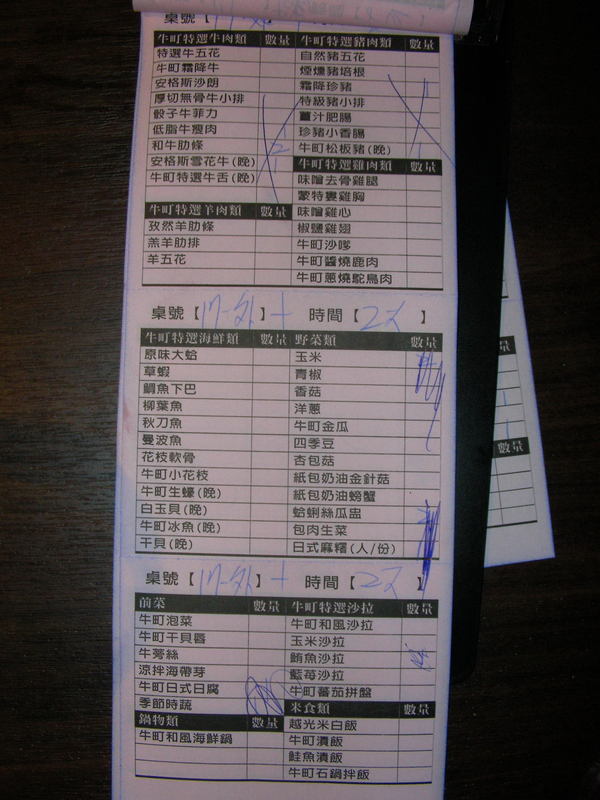 桌號【
牛町特選牛肉類 數量 牛町特選豬肉類 數量
特選牛五花 自然豬五花
牛町霜降牛 煙燻豬培根
安格斯沙朗 霜降珍豬
厚切無骨牛小排 特級豬小排
骰子牛菲力 薑汁肥腸
低脂牛瘦肉 1 珍豬小香腸
和牛肋條 2 牛町松板豬(晚) 1
安格斯雪花牛(晚) 1 牛町特選雞肉類 數量
牛町特選牛舌(晚) 味噌去骨雞腿
蒙特婁雞胸
牛町特選羊肉類 數量 味噌雞心
孜然羊肋條 椒鹽雞翅
羔羊肋排 牛町沙嗲
羊五花 牛町醬燒鹿肉
牛町蔥燒駝鳥肉
桌號【 】 時間【 】
牛町特選海鮮類 數量 野菜類 數量
原味大蛤 玉米
草蝦 青椒
鯛魚下巴 香菇
柳葉魚 洋蔥
秋刀魚 牛町金瓜
曼波魚 四季豆
花枝軟骨 杏包菇
牛町小花枝 紙包奶油金針菇
牛町生蠔(晚) 紙包奶油螃蟹
白玉貝(晚) 蛤蜊絲瓜盅
牛町冰魚(晚) 包肉生菜
干貝(晚) 日式麻糬(人/份)
桌號【 】 時間【 】
前菜 數量 牛町特選沙拉 數量
牛町泡菜 牛町和風沙拉
牛町干貝唇 玉米沙拉
牛蒡絲 鮪魚沙拉
涼拌海帶芽 藍莓沙拉
牛町日式日腐 牛町蕃茄拼盤
季節時蔬 米食類 數量
鍋物類 數量 越光米白飯
牛町和風海鮮鍋 牛町漬飯
鮭魚漬飯
牛町石鍋拌飯
數量
數量